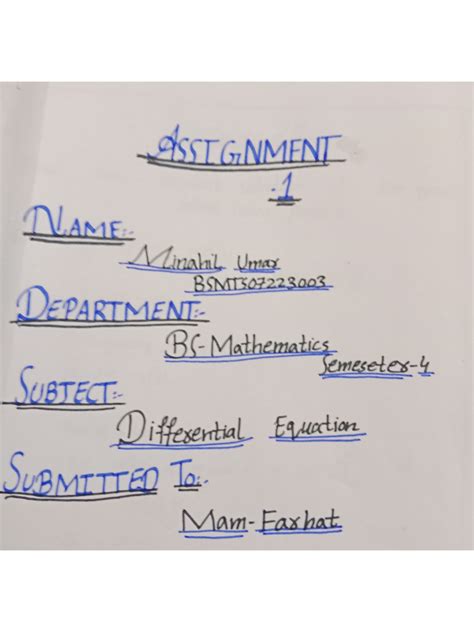 ASSIGNMENT
.1
NAME:-
Minahil Umar
BSMTS07223003
DEPARTMENT:-
BS-Mathematics
Semeseter-4
SUBJECT:-
Differential Equation
SUBMITTED TO:-
Mam-Farhat